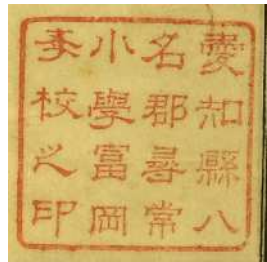 愛知縣八
名郡尋常
小學富岡
本校之印